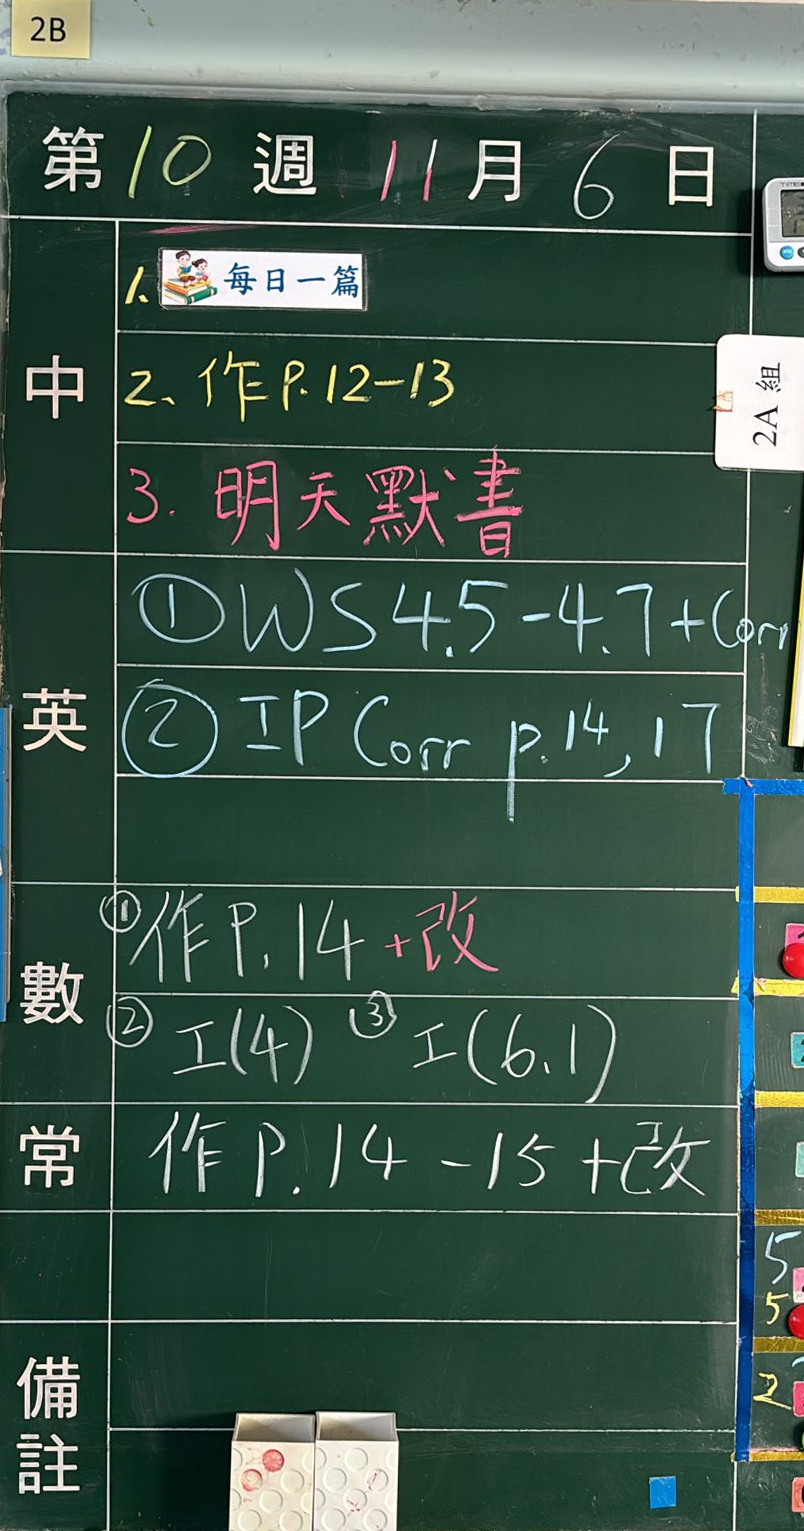 2B
第10週 11月6日
中
1. 每日一篇
2、作P.12-13
3. 明天默書
2A組
英
①WS 4.5-4.7+Corr
② IP Corr p.14, 17
數
①作P.14+改
② 工(4) ③ 工(6.1)
常
作P.14-15+改
5
5
2
備註